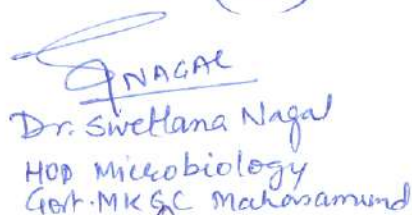 NAGAL
Dr. Swetlana Nagal
HOD Microbiology
Govt. MKGC Mahasamund